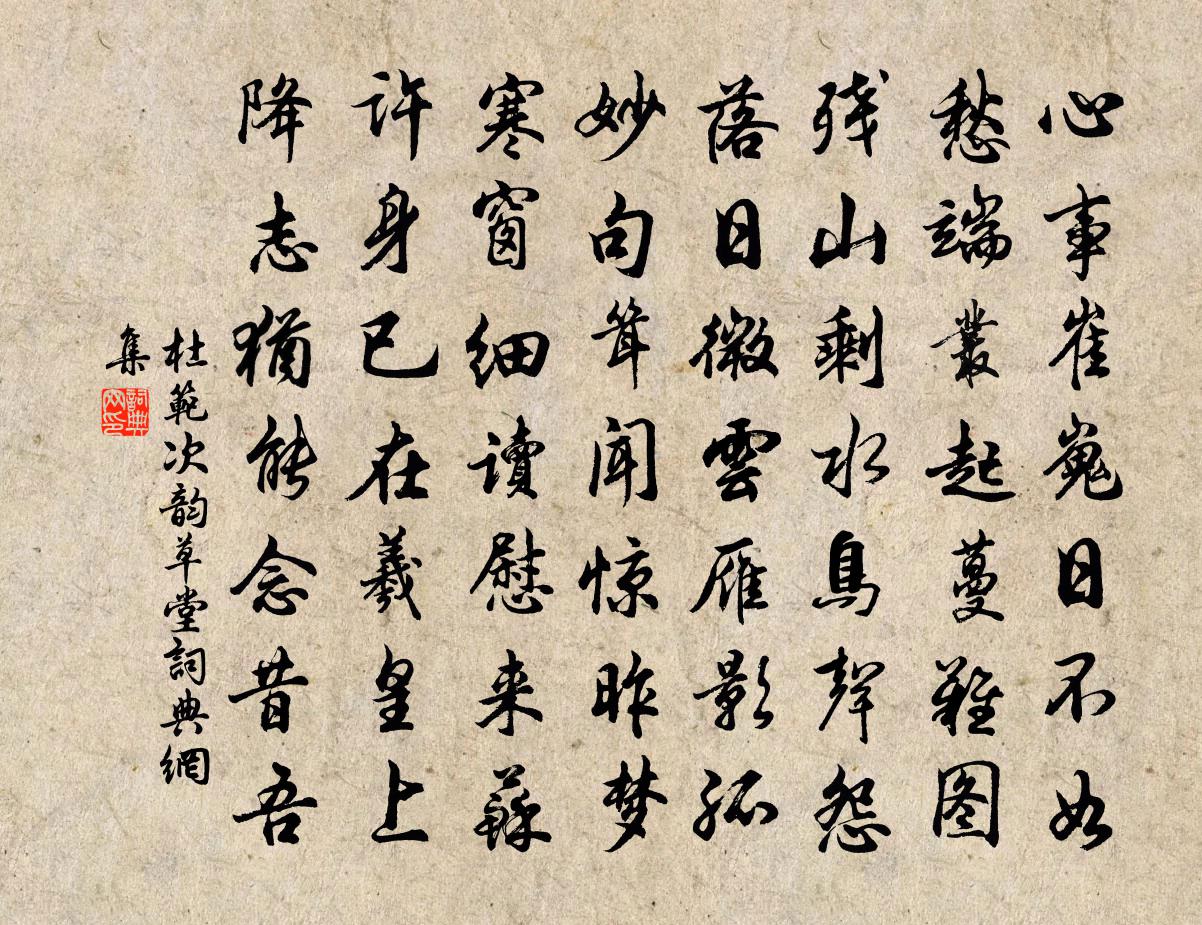 心事崔嵬日不如
愁端叢起蔓難图
残山剩水鳥聲怨
落日微雲雁影孤
妙句耸聞惊昨梦
寒窗細讀慰来蘇
許身已在羲皇上
降志猶能念昔吾
杜範次韵草堂詞典網
集
詞典网印